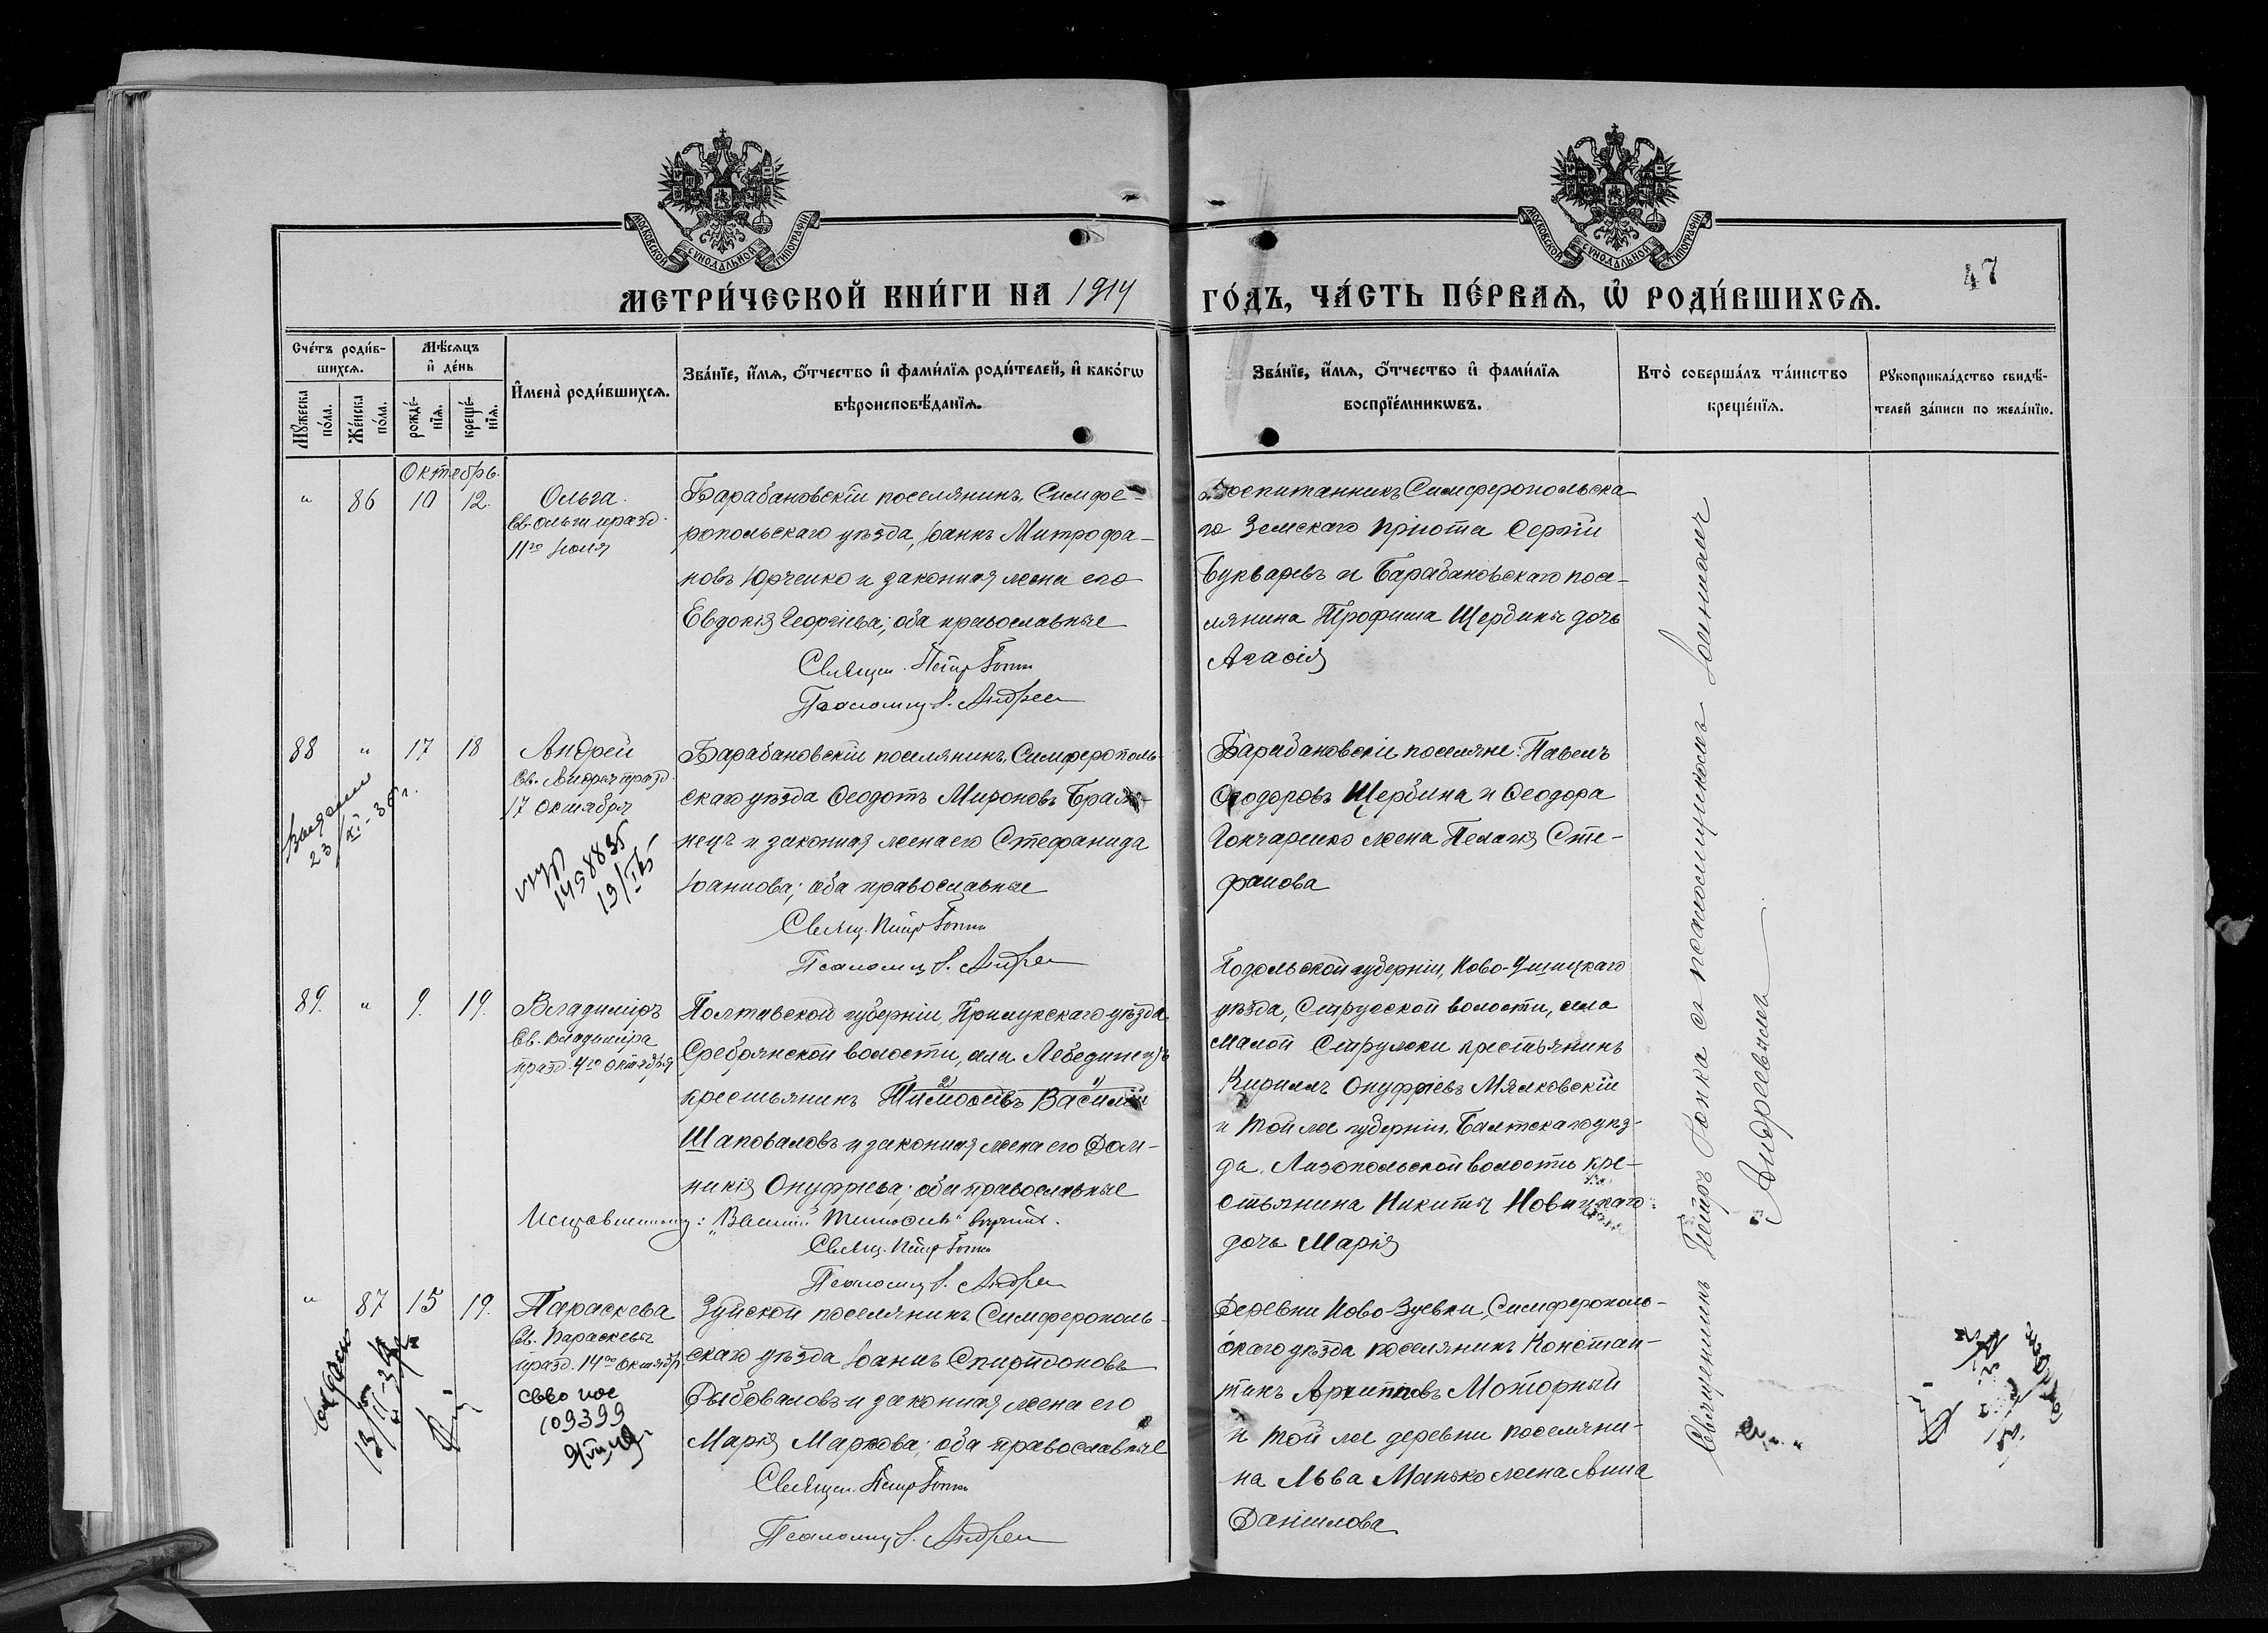 МОСКОВСКОЙ СѴНОДАЛЬНОЙ ТИПОГРАФІИ
МОСКОВСКОЙ СѴНОДАЛЬНОЙ ТИПОГРАФІИ
МЕТРИ́ЧЕСКОЙ КНИ́ГИ НА 1914 ГО́ДЪ, ЧА́СТЬ ПЕ́РВАѦ, Ѡ РОДИ́ВШИХСѦ.
47
Сче́тъ роди́в-
шихсѧ.
Мѣ́сѧцъ
и де́нь
Мꙋ́жеска
по́ла.
Же́нска
по́ла.
рожде́-
нїѧ.
креще́-
нїѧ.
Имена̀ роди́вшихсѧ.
Зва́нїе, и́мѧ, о́тчество и фами́лїѧ роди́телей, и како́гѡ
вѣроисповѣ́данїѧ.
Зва́нїе, и́мѧ, о́тчество и фами́лїѧ
воспрїе́мникѡвъ.
Кто̀ соверша́лъ та́инство
креще́нїѧ.
Рꙋкоприкла́дство свидѣ́-
телей за́писи по жела́нїю.
Октябрь.
" 86 10 12.
Ольга.
Св. Ольги празд.
11го Іюля
Барабановскій поселянинъ, Симфе-
ропольскаго уѣзда, Іоаннъ Митрофа-
новъ Юрченко и законная жена его
Евдокія Георгіева; оба православные
Священ. Петръ
Псаломщ. І. Андрее
Воспитанникъ Симферопольска-
го Земскаго пріюта Сергій
Букваревъ и Барабановскаго посе-
лянина Трофима Щербины дочь
Агафія
88 " 17 18
Андрей
Св. Андрея празд.
17 Октября
1498835
Барабановскій поселянинъ, Симферополь-
скаго уѣзда Ѳеодотъ Мироновъ
нецъ и законная жена его Стефанида
Іоаннова; оба православные
Свящ. Петръ
Псаломщ. І. Андрее
Барабановскіе поселяне: Павелъ
Ѳеодоровъ Щербина и Ѳеодора
Гончаренко жена Пелагія Сте-
фанова
89. " 9. 19.
Владиміръ
Св. Владиміра
празд. 4го Октября
Полтавской губерніи, Прилукскаго уѣзда
Сребрянской волости, села Лебединецъ
крестьянинъ Тимоѳеевъ Василій
Шаповаловъ и законная жена его Дом-
никія Онуфріева; оба православные
Исправленному: "Василій Тимоѳеевъ" вѣрить.
Свящ. Петръ
Псаломщ. І. Андрее
Подольской губерніи, Ново-Ушицкаго
уѣзда, Стружской волости, села
Малой Стружки крестьянинъ
Кириллъ Онуфріевъ Мялковскій
и той же губерніи, Балтскаго уѣз-
да, волости кре-
стьянина Никиты
дочь Марія
" 87 15 19.
Параскева
Св. Параскевы
празд. 14го Октябр.
109399
Зуйской поселянинъ Симферополь-
скаго уѣзда Іоаннъ Спиридоновъ
Рыбоваловъ и законная жена его
Марія Маркова; оба православные
Священ. Петръ
Псаломщ. І. Андрее
Деревни Ново-Зуевки, Симферополь-
скаго уѣзда поселянинъ Констан-
тинъ Архиповъ Моторный
и той же деревни поселяни-
на Льва Манько жена Анна
Даніилова
Священникъ Петръ съ псаломщикомъ Іоанномъ
Андреевымъ